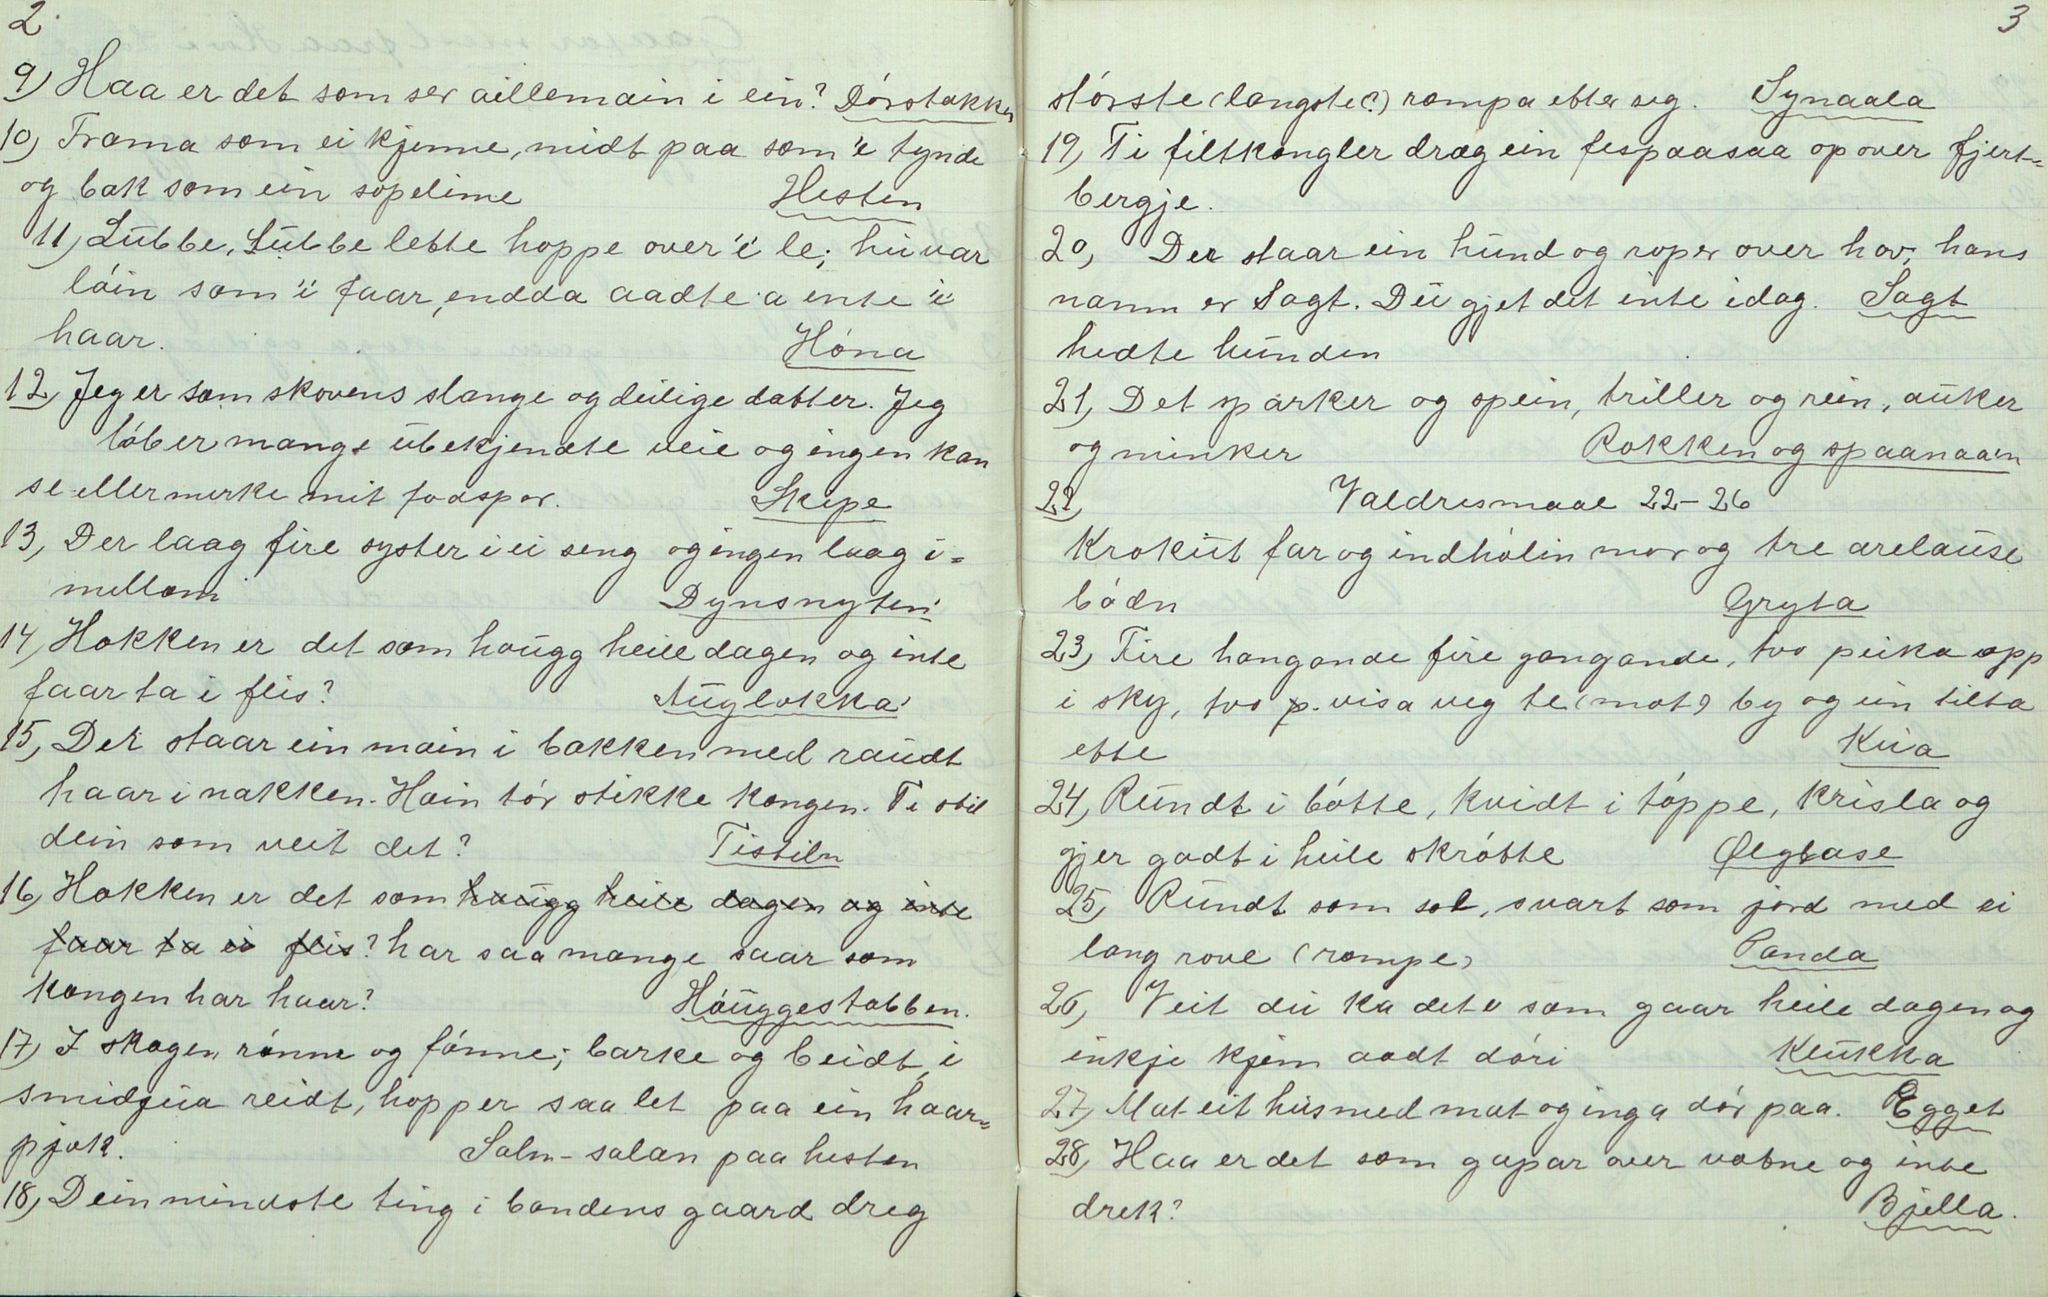 2
9) Haa er det som ser aillemain i ein? Dórstokken
10) Frama som ei kjenne, midt paa som 'e tynde
og bak som ein sopelime Hesten
11) Lubbe, Lubbe lette hoppe over 'i' le; hu var
lóin som 'i faar, endda aadte a inte 'i'
haar. Hóna
12) Jeg er som skovens slange og deilige datter. Jeg
lóber mange ubekjendte veie og ingen kan
se eller merke mit fodspor. Skipe
13) Der laag fire syster i ei seng og ingen laag i-
mellom Dynsnyten'
14) Hokken er det som haugg heile dagen og inte
faar ta i flis? Auglokka'
15) Det staar ein main i bakken med raudt
haar i nakken. Hain tór stikke kongen. Ti stil
dein som veit det? Tistiln
16) Hokken er det som haugg heile dagen og inte
faar ta ei flis? har saa mange saar som
kongen har haar? Hóuggestabben.
17) I skogen rónne og fónne; barke og beidt, i
smidjua reidt, hopper saa let paa ein haar-
pjok. Saln- salan paa hesten
18) Dein mindste ting i bondens gaard dreg
3
stórste (længste(?) rompa etter seg. Synaala
19) Ti filtkongler drog ein fespaasaa op over fjert-
bergje.
20) Der staar ein hund og roper over hav; hans
namn er Sagt. Du gjet det inte idag. Sagt
hedte hunden
21) Det sparker og spein, triller og rein, auker
og minker Rokken og spaanaa'n
22) Valdresmaal 22-26
Krokut far og indhólin mor og tre arelause
bódn Gryta
23) Fire hangande fire gangande, tvo peika opp
i sky, tvo p. visa veg te (mot) by og ein tilta
ette Kua
24) Rundt i bótte, kvidt i tóppe, krisla og
gjer godt i heile skrótte Ølglase
25) Rundt som sol, svart som jord med ei
lang rove (rompe) Panda
26) Veit du ka det e som gaar heile dagen og
inkje kjem aadt dóri Klukka
27) Mat eit hus med mat og inga dór paa. Egget
28) Haa er det som gapar over vatne og inte
drek? Bjella.